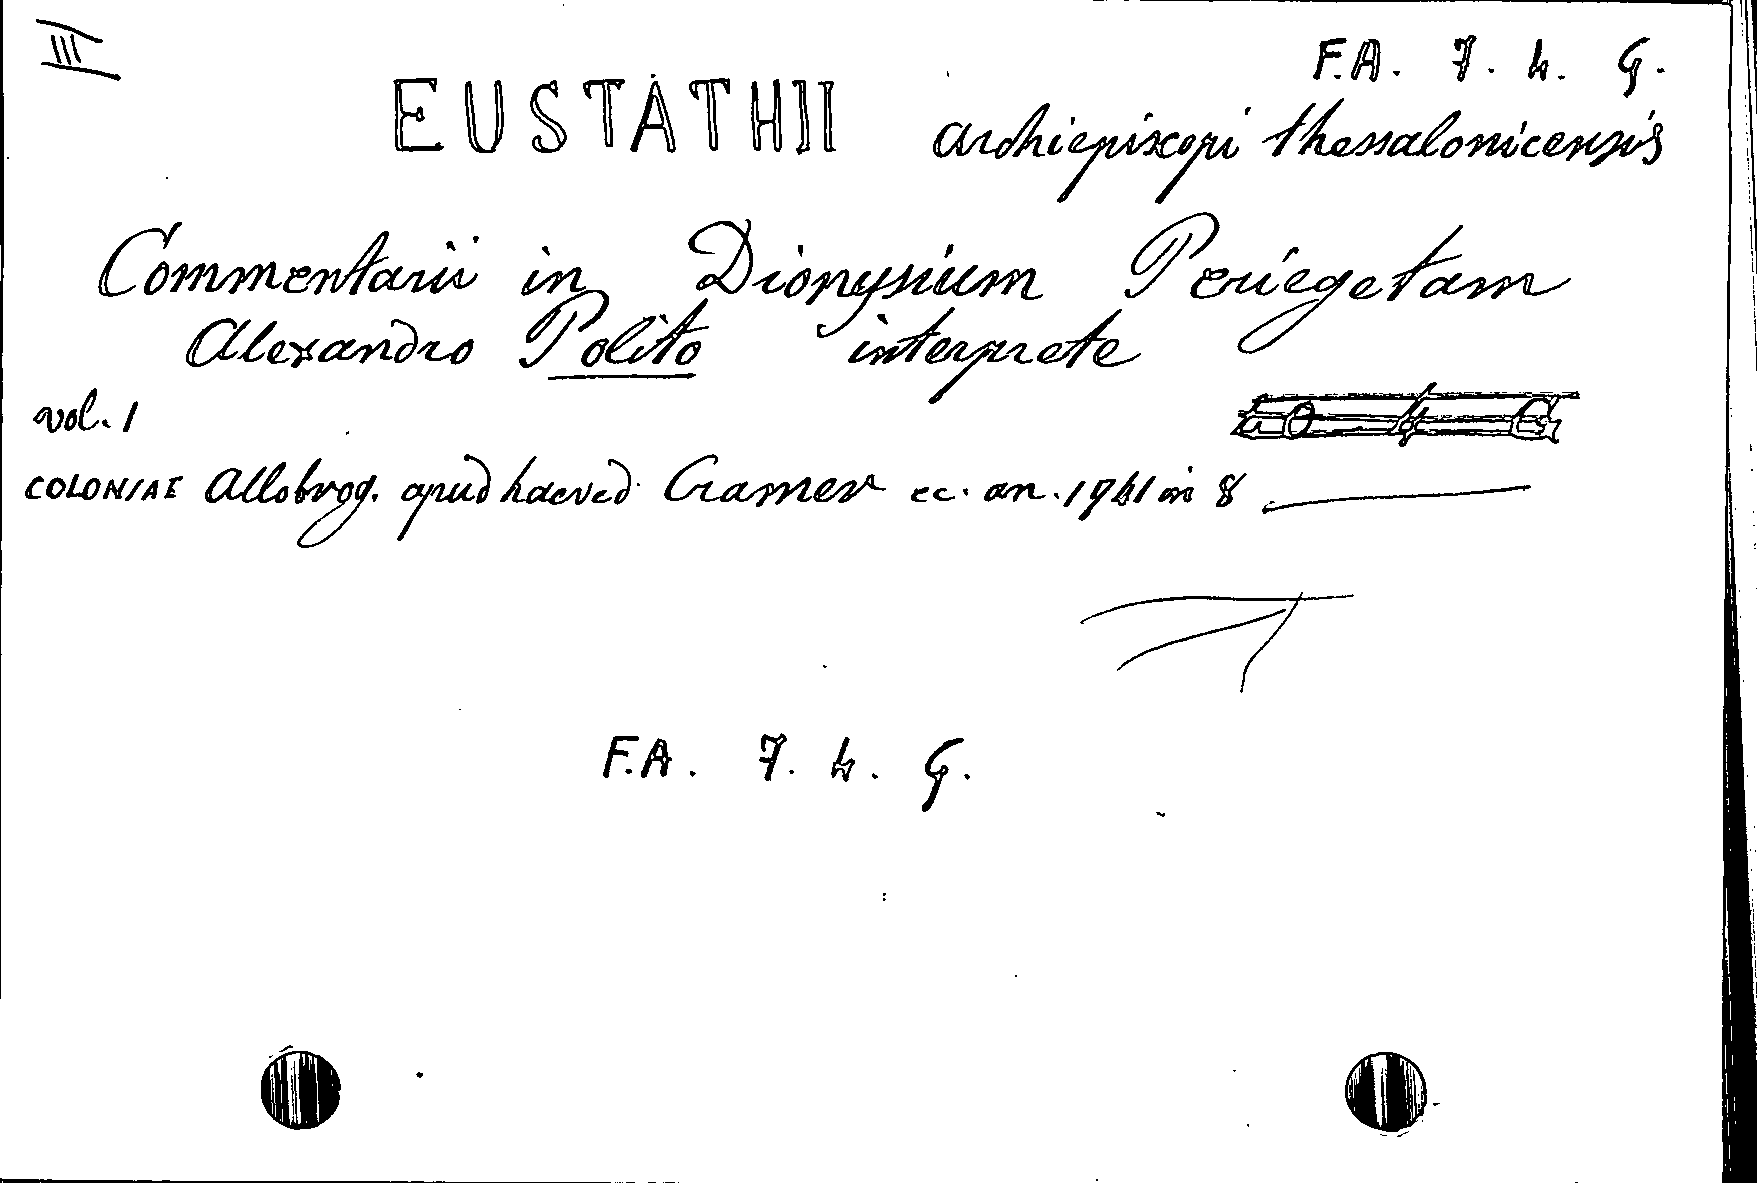 III
F.A. 7. h. G.
EUSTATHII archiepiscopi thessalonicensis
Commentarii in Dionysium Periegetam
Alexandro Polito interprete
vol. 1
COLONIAE Allobrog. apud haered. Cramer ec. an. 1741 in 8
F.A. 7. h. G.